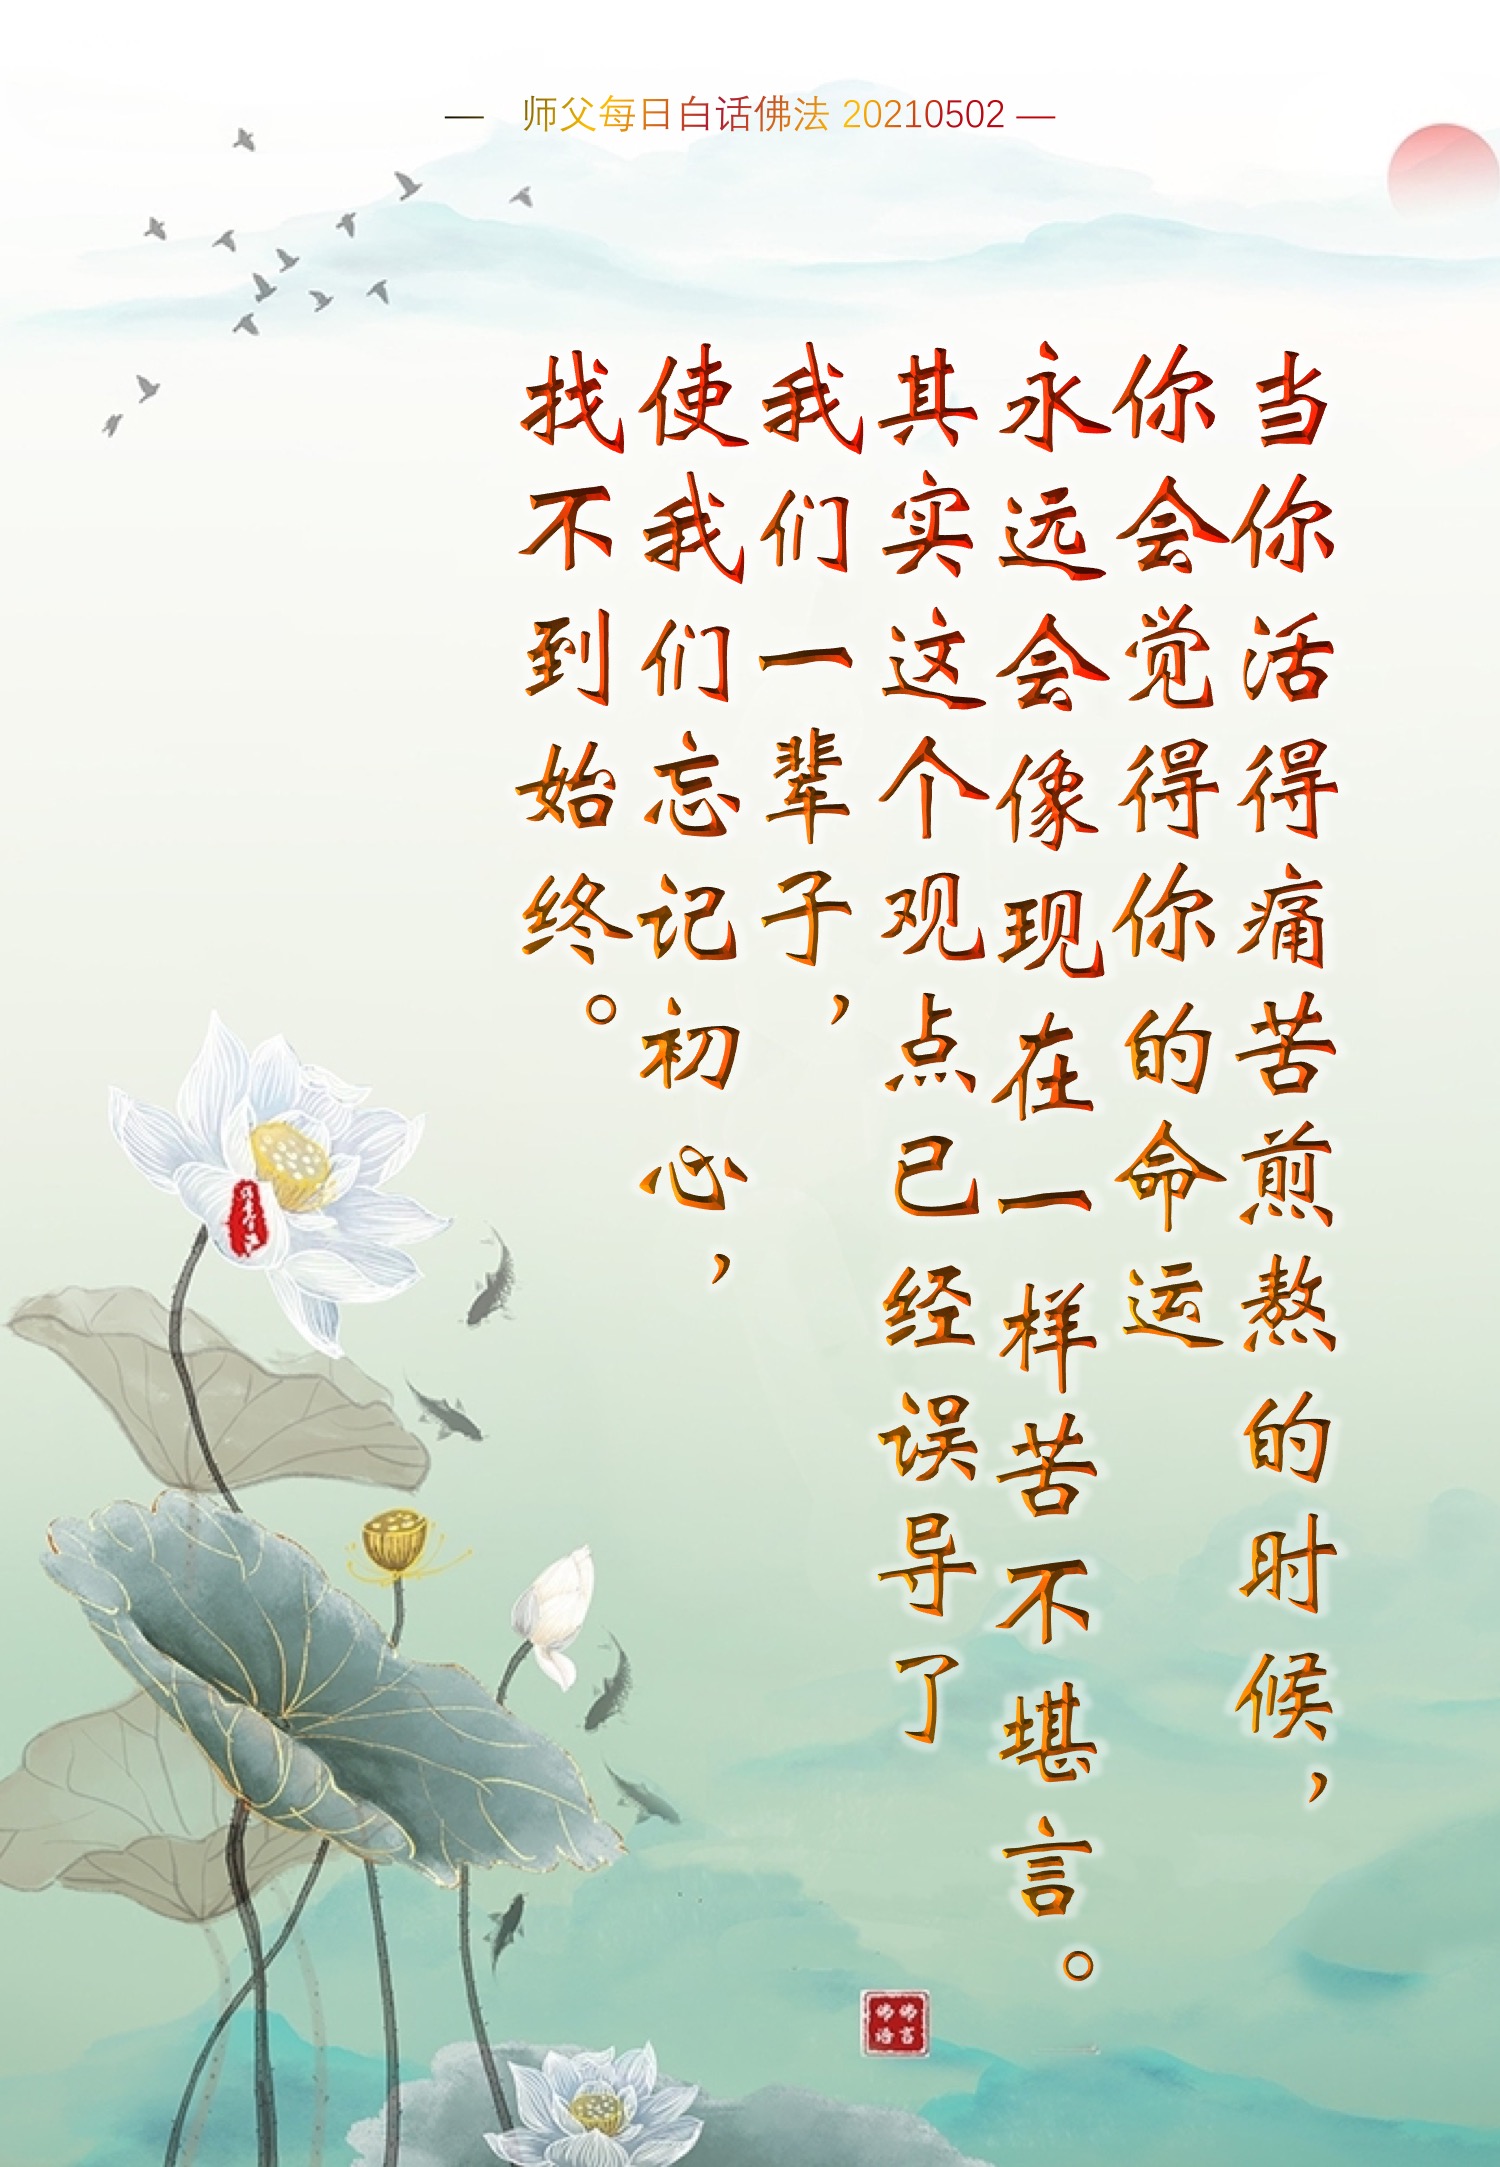 — 师父每日白话佛法 20210502 —
当你活得痛苦煎熬的时候，
你会觉得你的命运
永远会像现在一样苦不堪言。
其实这个观点已经误导了
我们一辈子，
使我们忘记初心，
找不到始终。
佛言
佛语